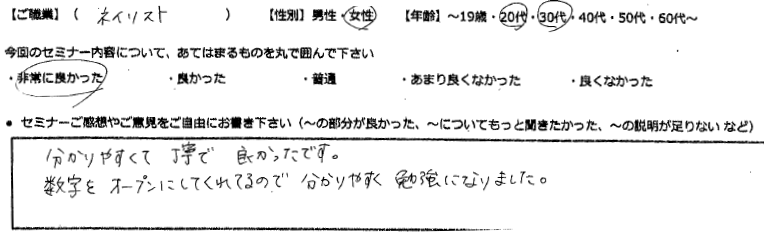 【ご職業】（ ネイリスト ） 【性別】男性・女性 【年齢】～19歳・20代・30代・40代・50代・60代～
今回のセミナー内容について、あてはまるものを丸で囲んで下さい
・非常に良かった ・良かった ・普通 ・あまり良くなかった ・良くなかった
● セミナーご感想やご意見をご自由にお書き下さい（～の部分が良かった、～についてもっと聞きたかった、～の説明が足りない など）
分かりやすくて 丁寧で 良かったです。
数字を オープンにしてくれてるので 分かりやすく 勉強になりました。